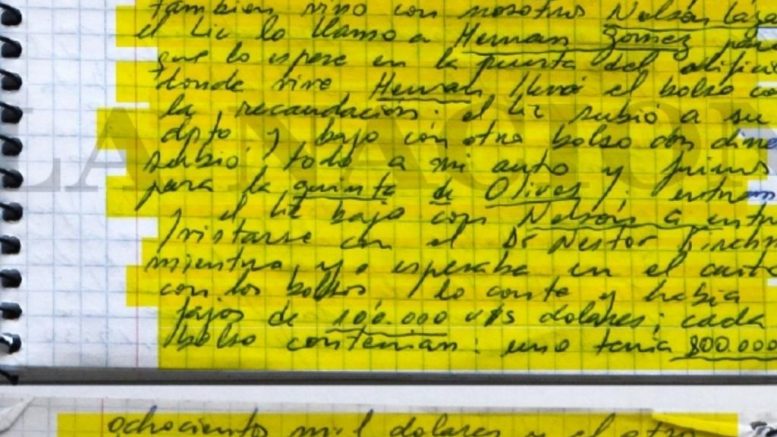 tambien vino con nosotros Nelson Laza
el Lic lo llamo a Hernan Gomez para
que lo espere en la puerta del edificio
donde vive Hernan llevó el bolso co
la recaudación; el Lic subio a su
dpto y bajo con otro bolso con dine
subió todo a mi auto y fuimos
para la quinta de Olivos y entram
y el Lic bajo con Nelson a entre
vistarse con el Dr Nestor Kirchn
mientras yo esperaba en el auto
con los bolsos lo conte y habia
fajos de 100.000 u$s dolares; cada
bolso contenian: uno tenia 800.000
ochociento mil dolares y el otro
LA NACION